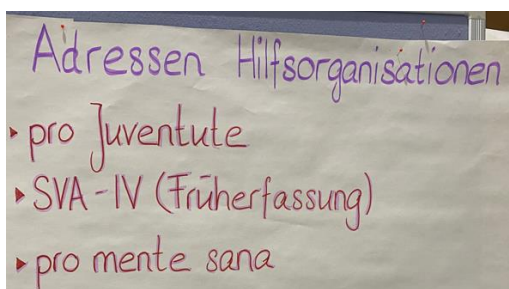 Adressen Hilfsorganisationen
▸ pro Juventute
▸ SVA-IV (Früherfassung)
▸ pro mente sana